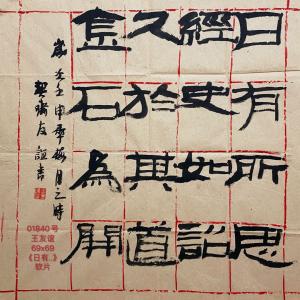 日有所思
經史如詔
久於其道
金石為開
申
月之時
友誼書
01840号
王友谊
69x69
《日有..》
软片